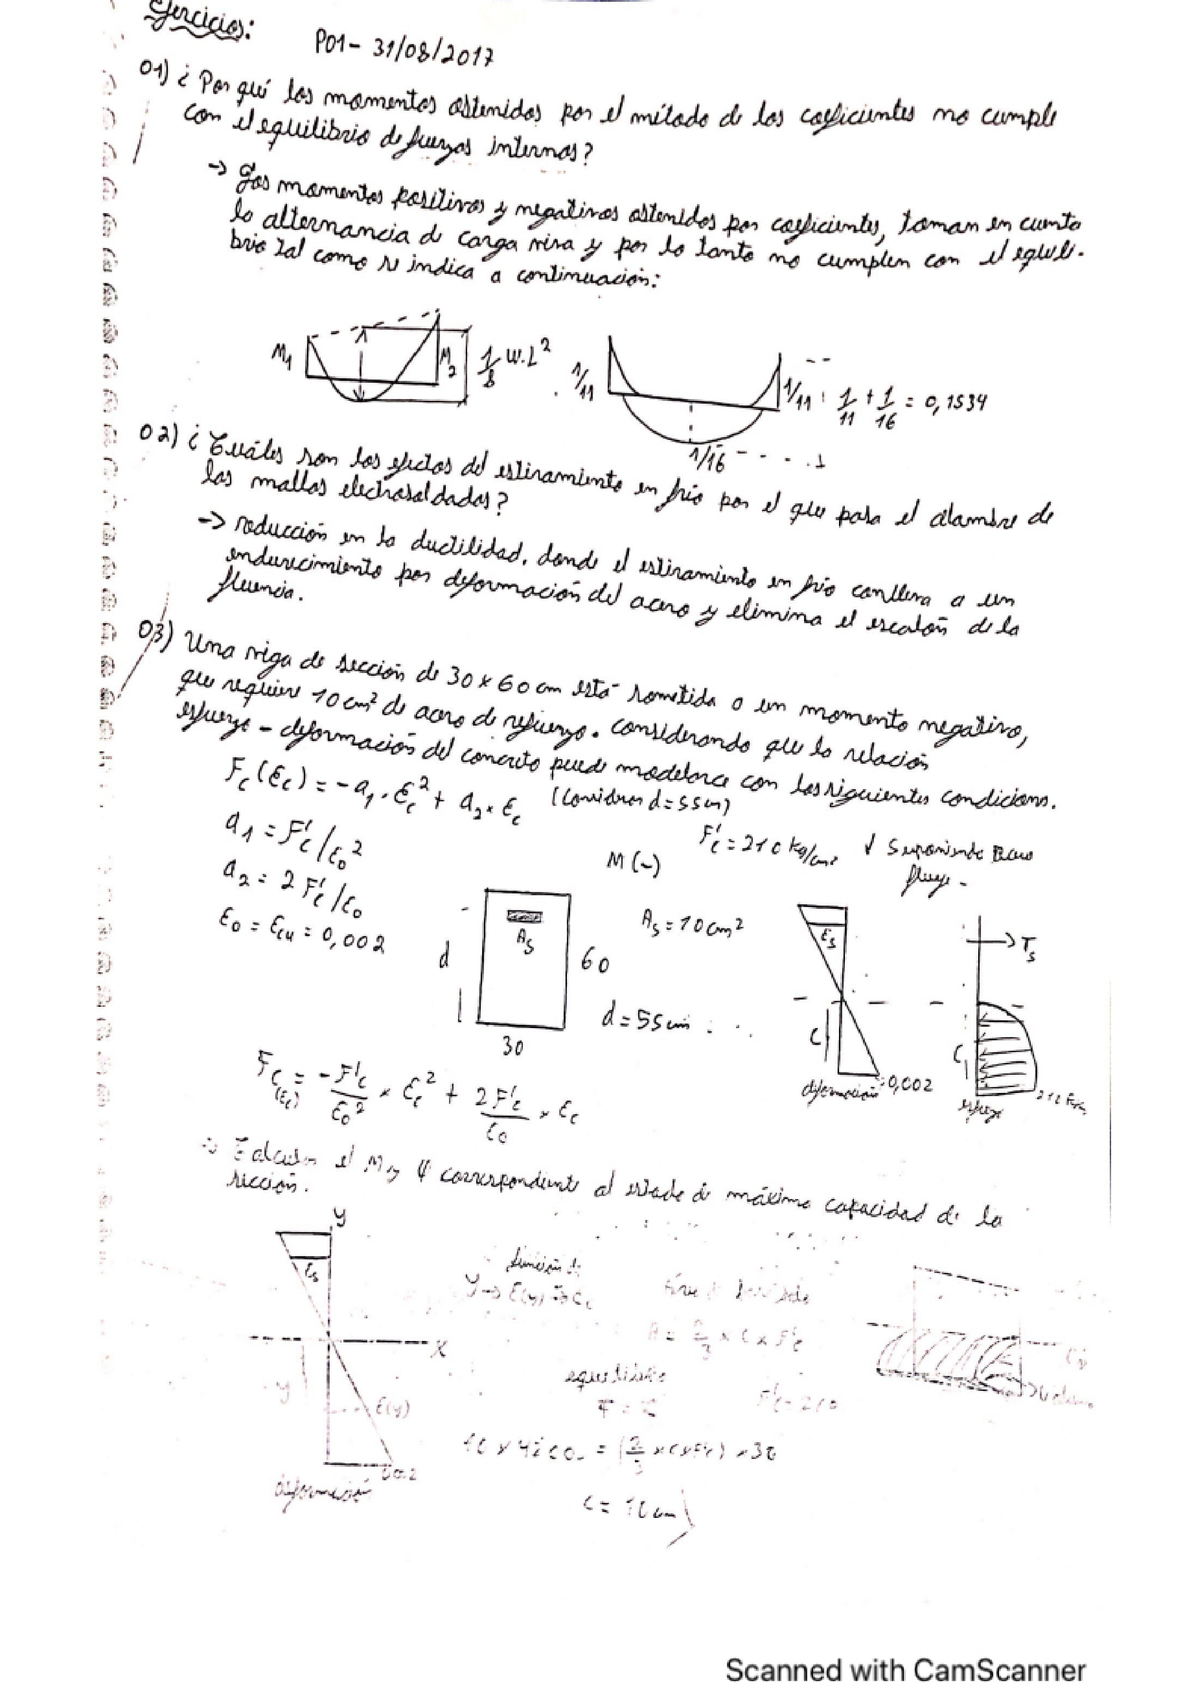 Ejercicios:
P01- 31/08/2017
01) ¿Por qué los momentos obtenidos por el método de los coeficientes no cumple
con el equilibrio de fuerzas internas?
-> Los momentos positivos y negativos obtenidos por coeficientes, toman en cuenta
la alternancia de carga viva y por lo tanto no cumplen con el equili-
brio tal como se indica a continuación:
M1
M2
1/8 W.L²
1/11
1/16
1/11
1/11 + 1/16 = 0,1534
02) ¿Cuáles son los efectos del estiramiento en frío por el que pasa el alambre de
las mallas electrosoldadas?
-> reducción en la ductilidad, donde el estiramiento en frío conlleva a un
endurecimiento por deformación del acero y elimina el escalón de la
fluencia.
03) Una viga de sección de 30x60cm está sometida a un momento negativo,
que requiere 10cm² de acero de refuerzo. considerando que la relación
esfuerzo - deformación del concreto puede modelarce con las siguientes condiciones.
Fc(εc) = -a1.εc² + a2×εc
(Considerar d=55cm)
a1 = F'c/εo²
a2 = 2F'c/εo
εo = εcu = 0,002
F'c = 210 kg/cm²
Suponiendo
fluye-
M(-)
As
d
60
30
As = 10cm²
d = 55cm
εs
c
deformación
0,002
Ts
c
esfuerzo
Fc(εc) = -F'c/εo² × εc² + 2F'c/εo × εc
Calcular el M y φ correspondiente al estado de máxima capacidad de la
sección.
y
εs
x
y
ε(y)
deformación
función de
A = 2/3 × c × F'c
equilibrio
F'c = 210
10 × 4200 = (2/3 × c × F'c) × 30
c = 10cm
Scanned with CamScanner